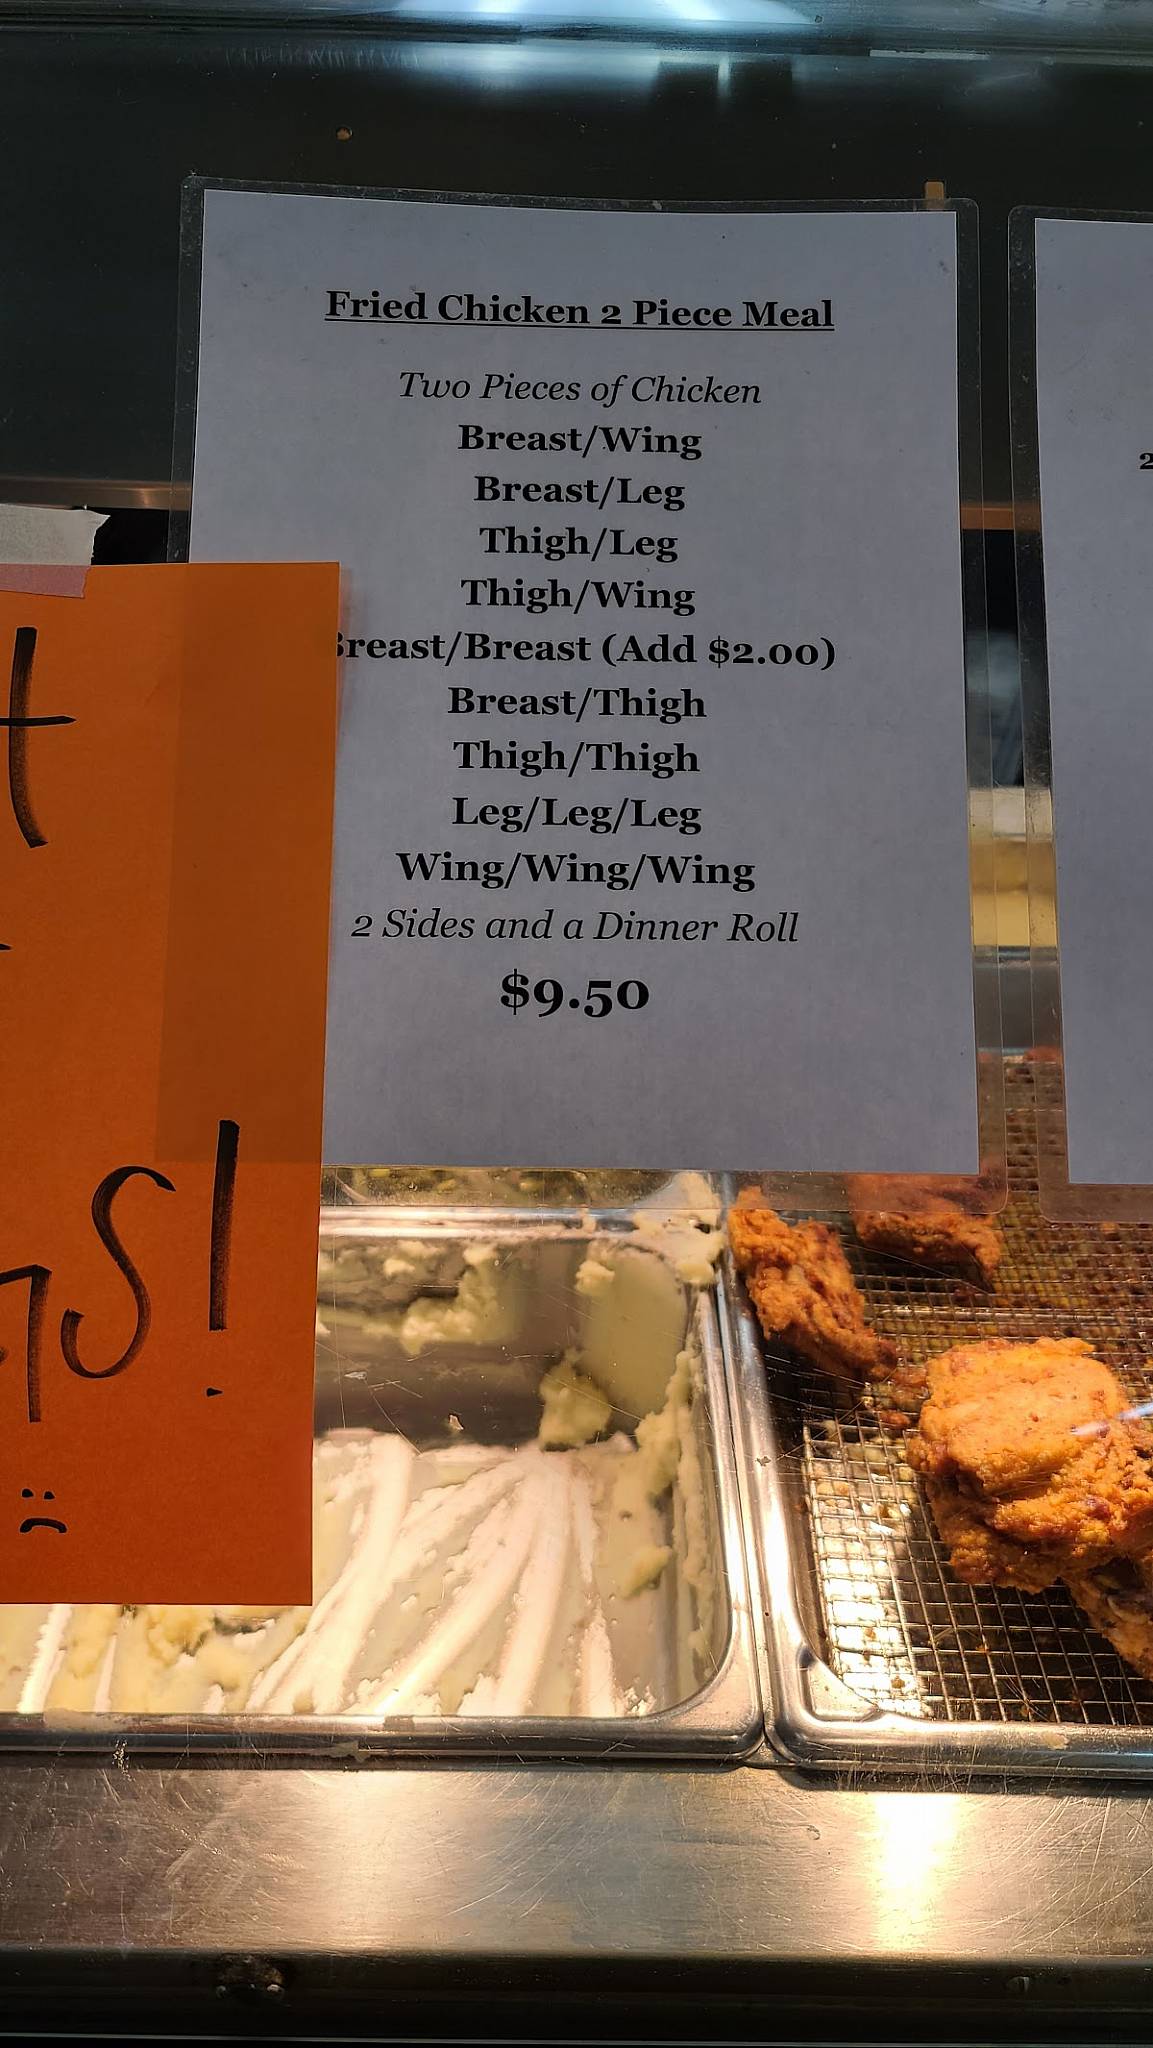 Fried Chicken 2 Piece Meal
Two Pieces of Chicken
Breast/Wing
Breast/Leg
Thigh/Leg
Thigh/Wing
Breast/Breast (Add $2.00)
Breast/Thigh
Thigh/Thigh
Leg/Leg/Leg
Wing/Wing/Wing
2 Sides and a Dinner Roll
$9.50
2